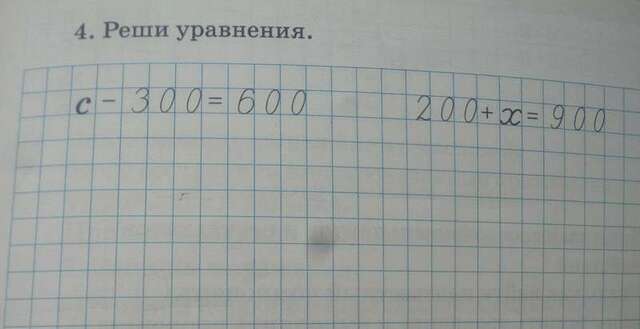 4. Реши уравнения.
с − 300 = 600 200 + х = 900